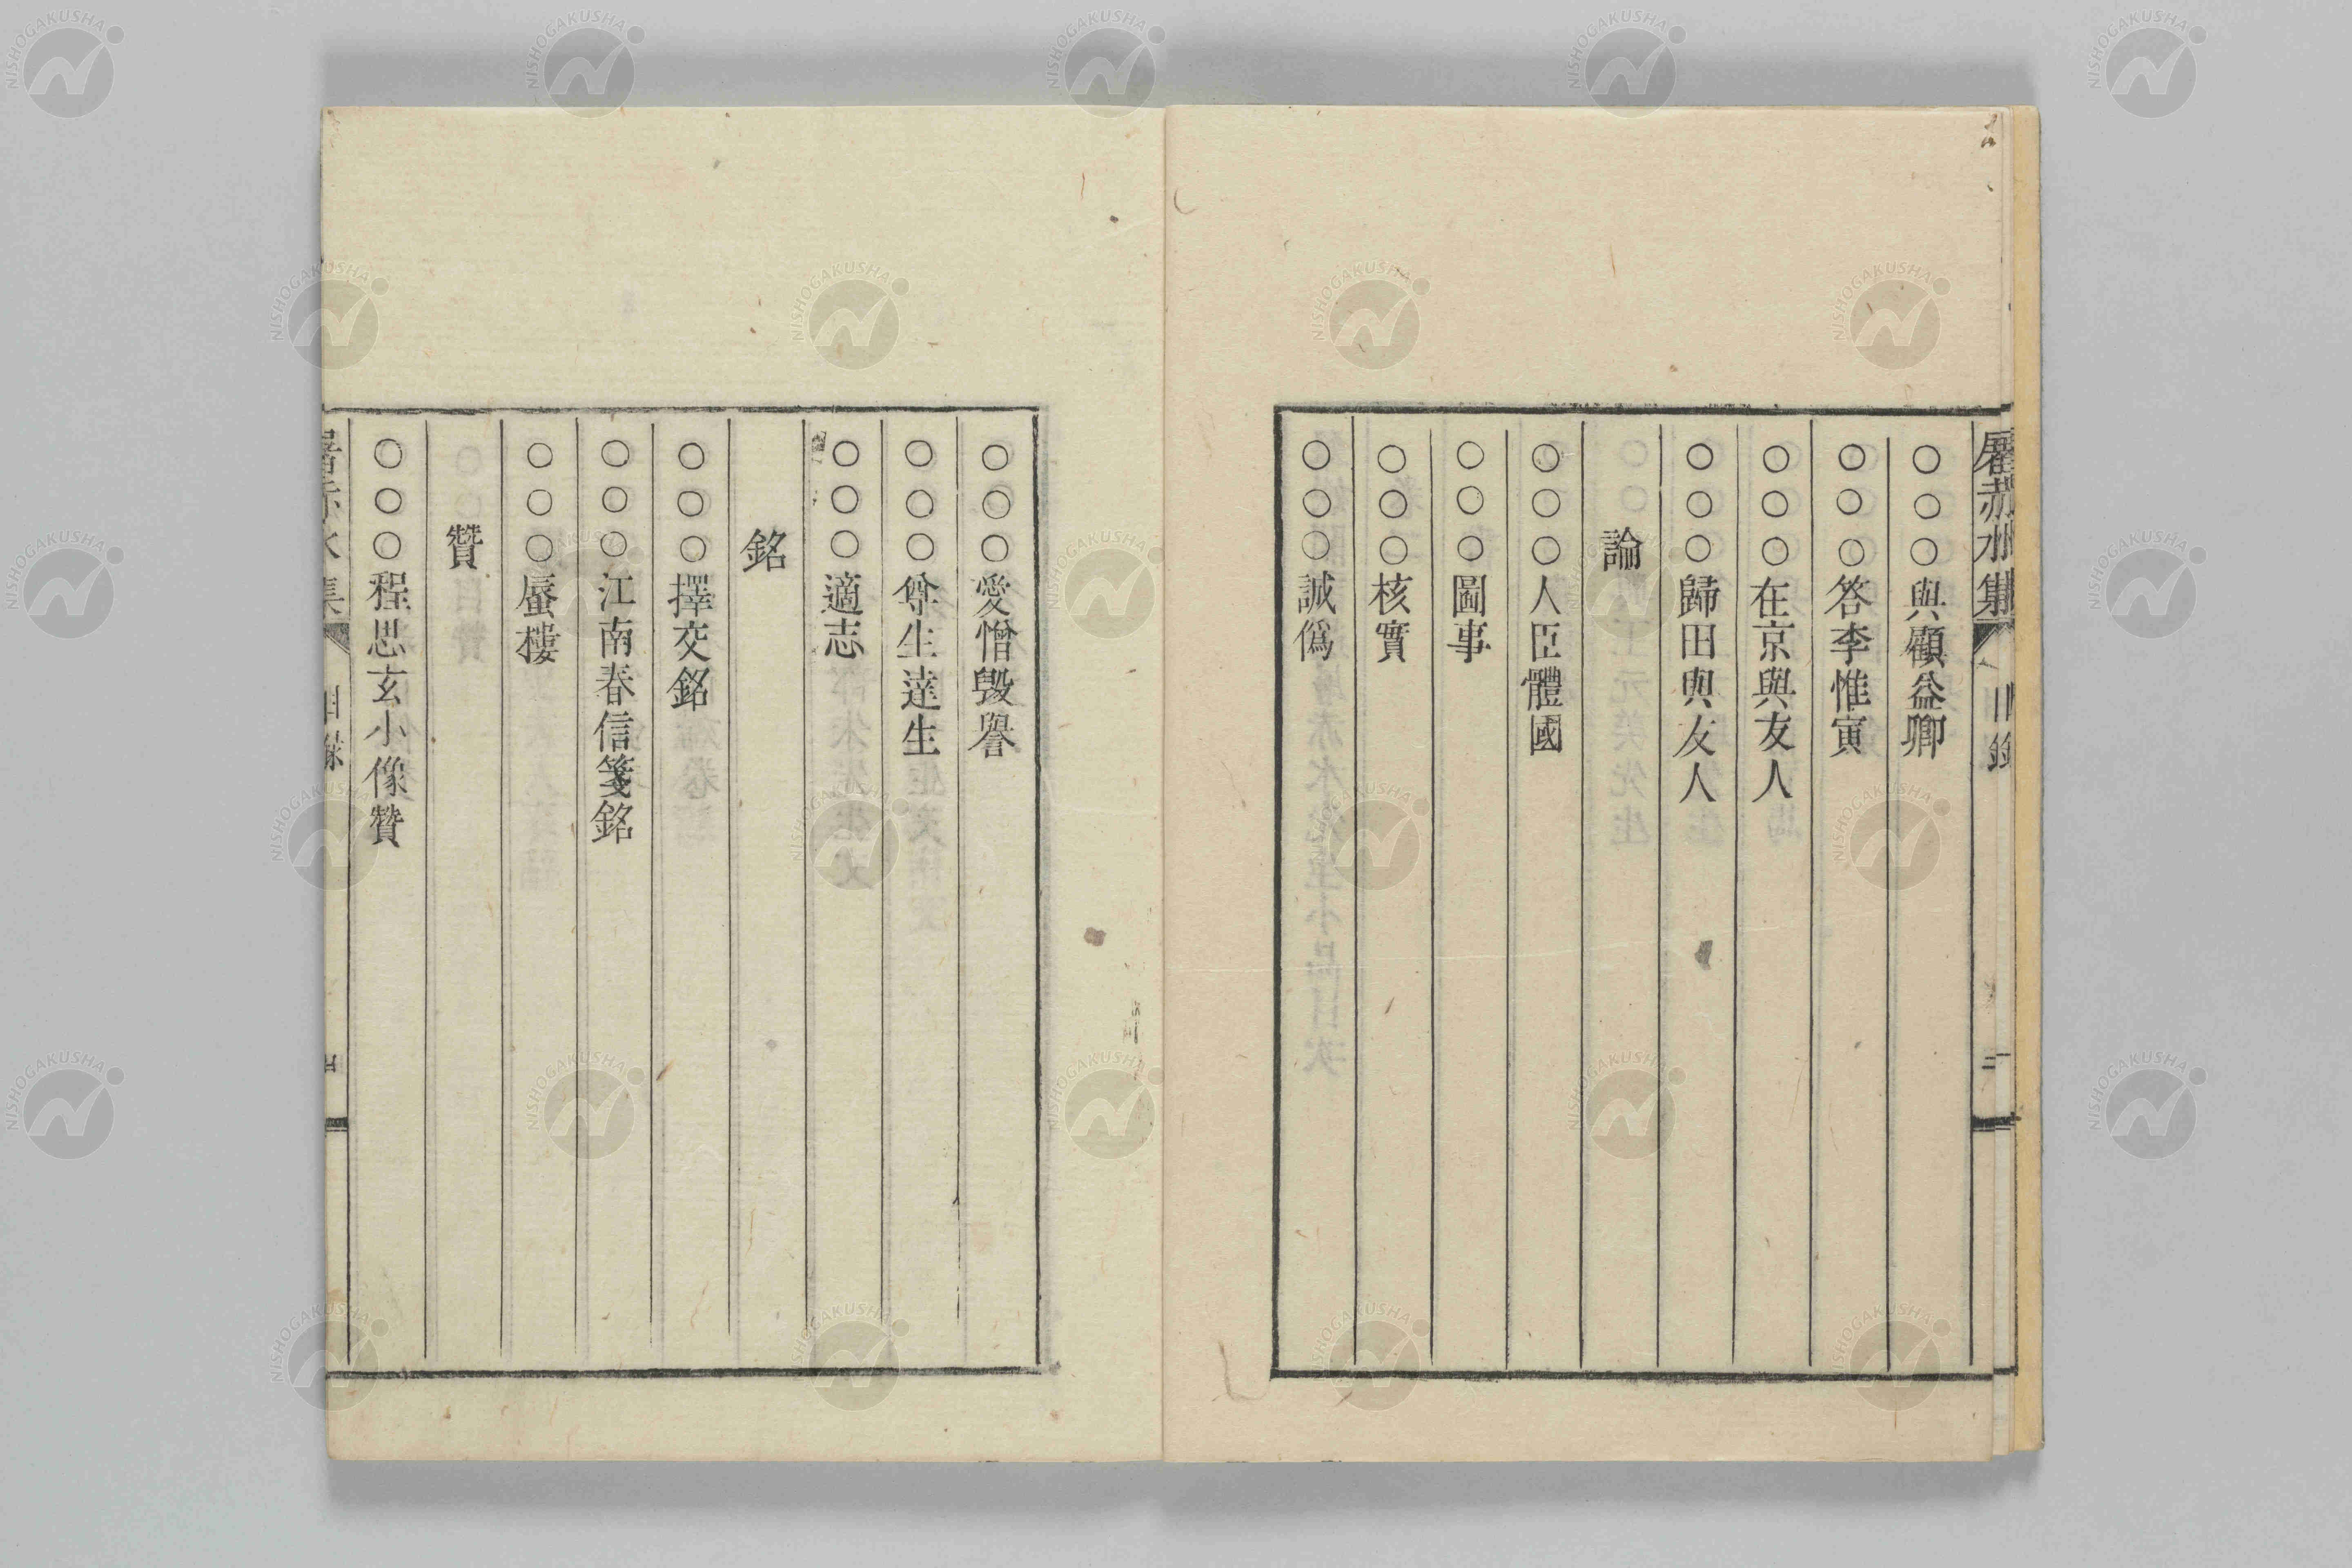 屠赤水集 目錄 三
○○○與顧益卿
○○○答李惟寅
○○○在京與友人
○○○歸田與友人
論
○○○人臣體國
○○○圖事
○○○核實
○○○誠僞
○○○愛憎毀譽
○○○尊生達生
○○○適志
銘
○○○擇交銘
○○○江南春信箋銘
○○○蜃樓
贊
○○○程思玄小像贊
屠赤水集 目錄
NISHOGAKUSHA